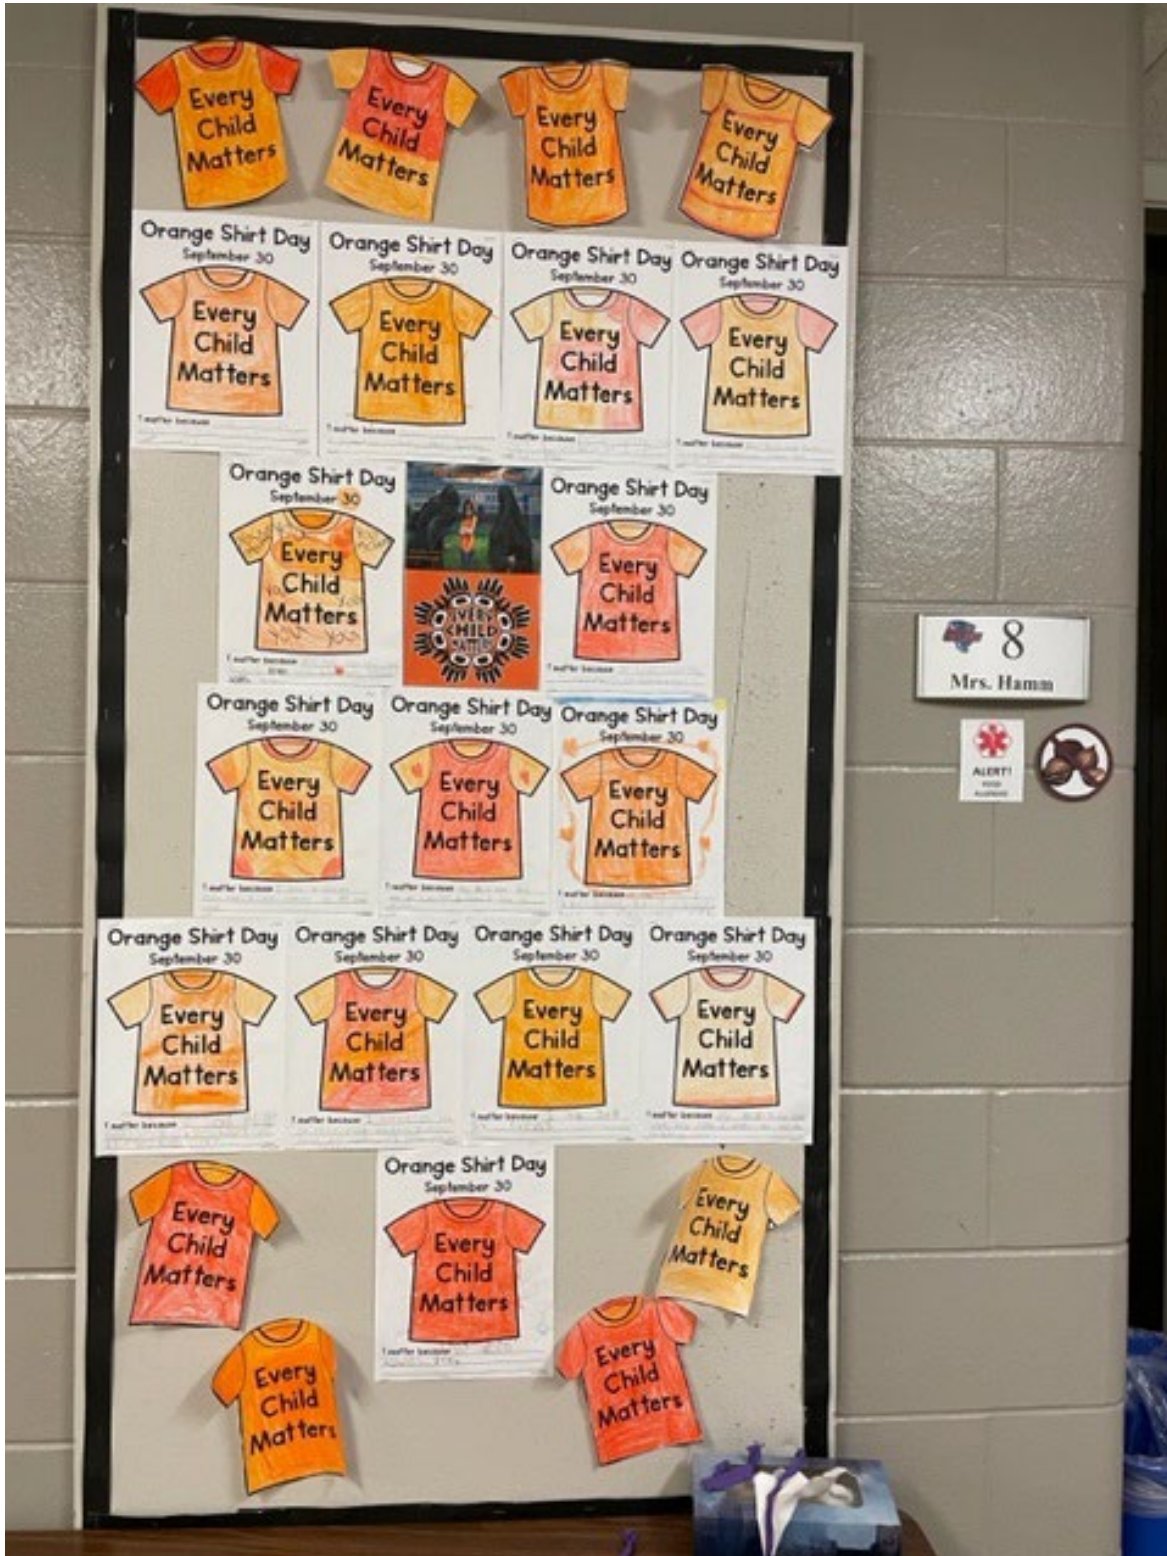 Every
Child
Matters
Every
Child
Matters
Every
Child
Matters
Every
Child
Matters
Orange Shirt Day
September 30
Every
Child
Matters
I matter because
Orange Shirt Day
September 30
Every
Child
Matters
I matter because
Orange Shirt Day
September 30
Every
Child
Matters
I matter because
Orange Shirt Day
September 30
Every
Child
Matters
I matter because
Orange Shirt Day
September 30
Every
Child
Matters
you you
I matter because
EVERY
CHILD
MATTERS
Orange Shirt Day
September 30
Every
Child
Matters
I matter because
8
Mrs. Hamm
ALERT!
FOOD
ALLERGIES
Orange Shirt Day
September 30
Every
Child
Matters
I matter because
Orange Shirt Day
September 30
Every
Child
Matters
I matter because
Orange Shirt Day
September 30
Every
Child
Matters
I matter because
Orange Shirt Day
September 30
Every
Child
Matters
I matter because
Orange Shirt Day
September 30
Every
Child
Matters
I matter because
Orange Shirt Day
September 30
Every
Child
Matters
I matter because
Orange Shirt Day
September 30
Every
Child
Matters
I matter because
Every
Child
Matters
Orange Shirt Day
September 30
Every
Child
Matters
I matter because
Every
Child
Matters
Every
Child
Matters
Every
Child
Matters